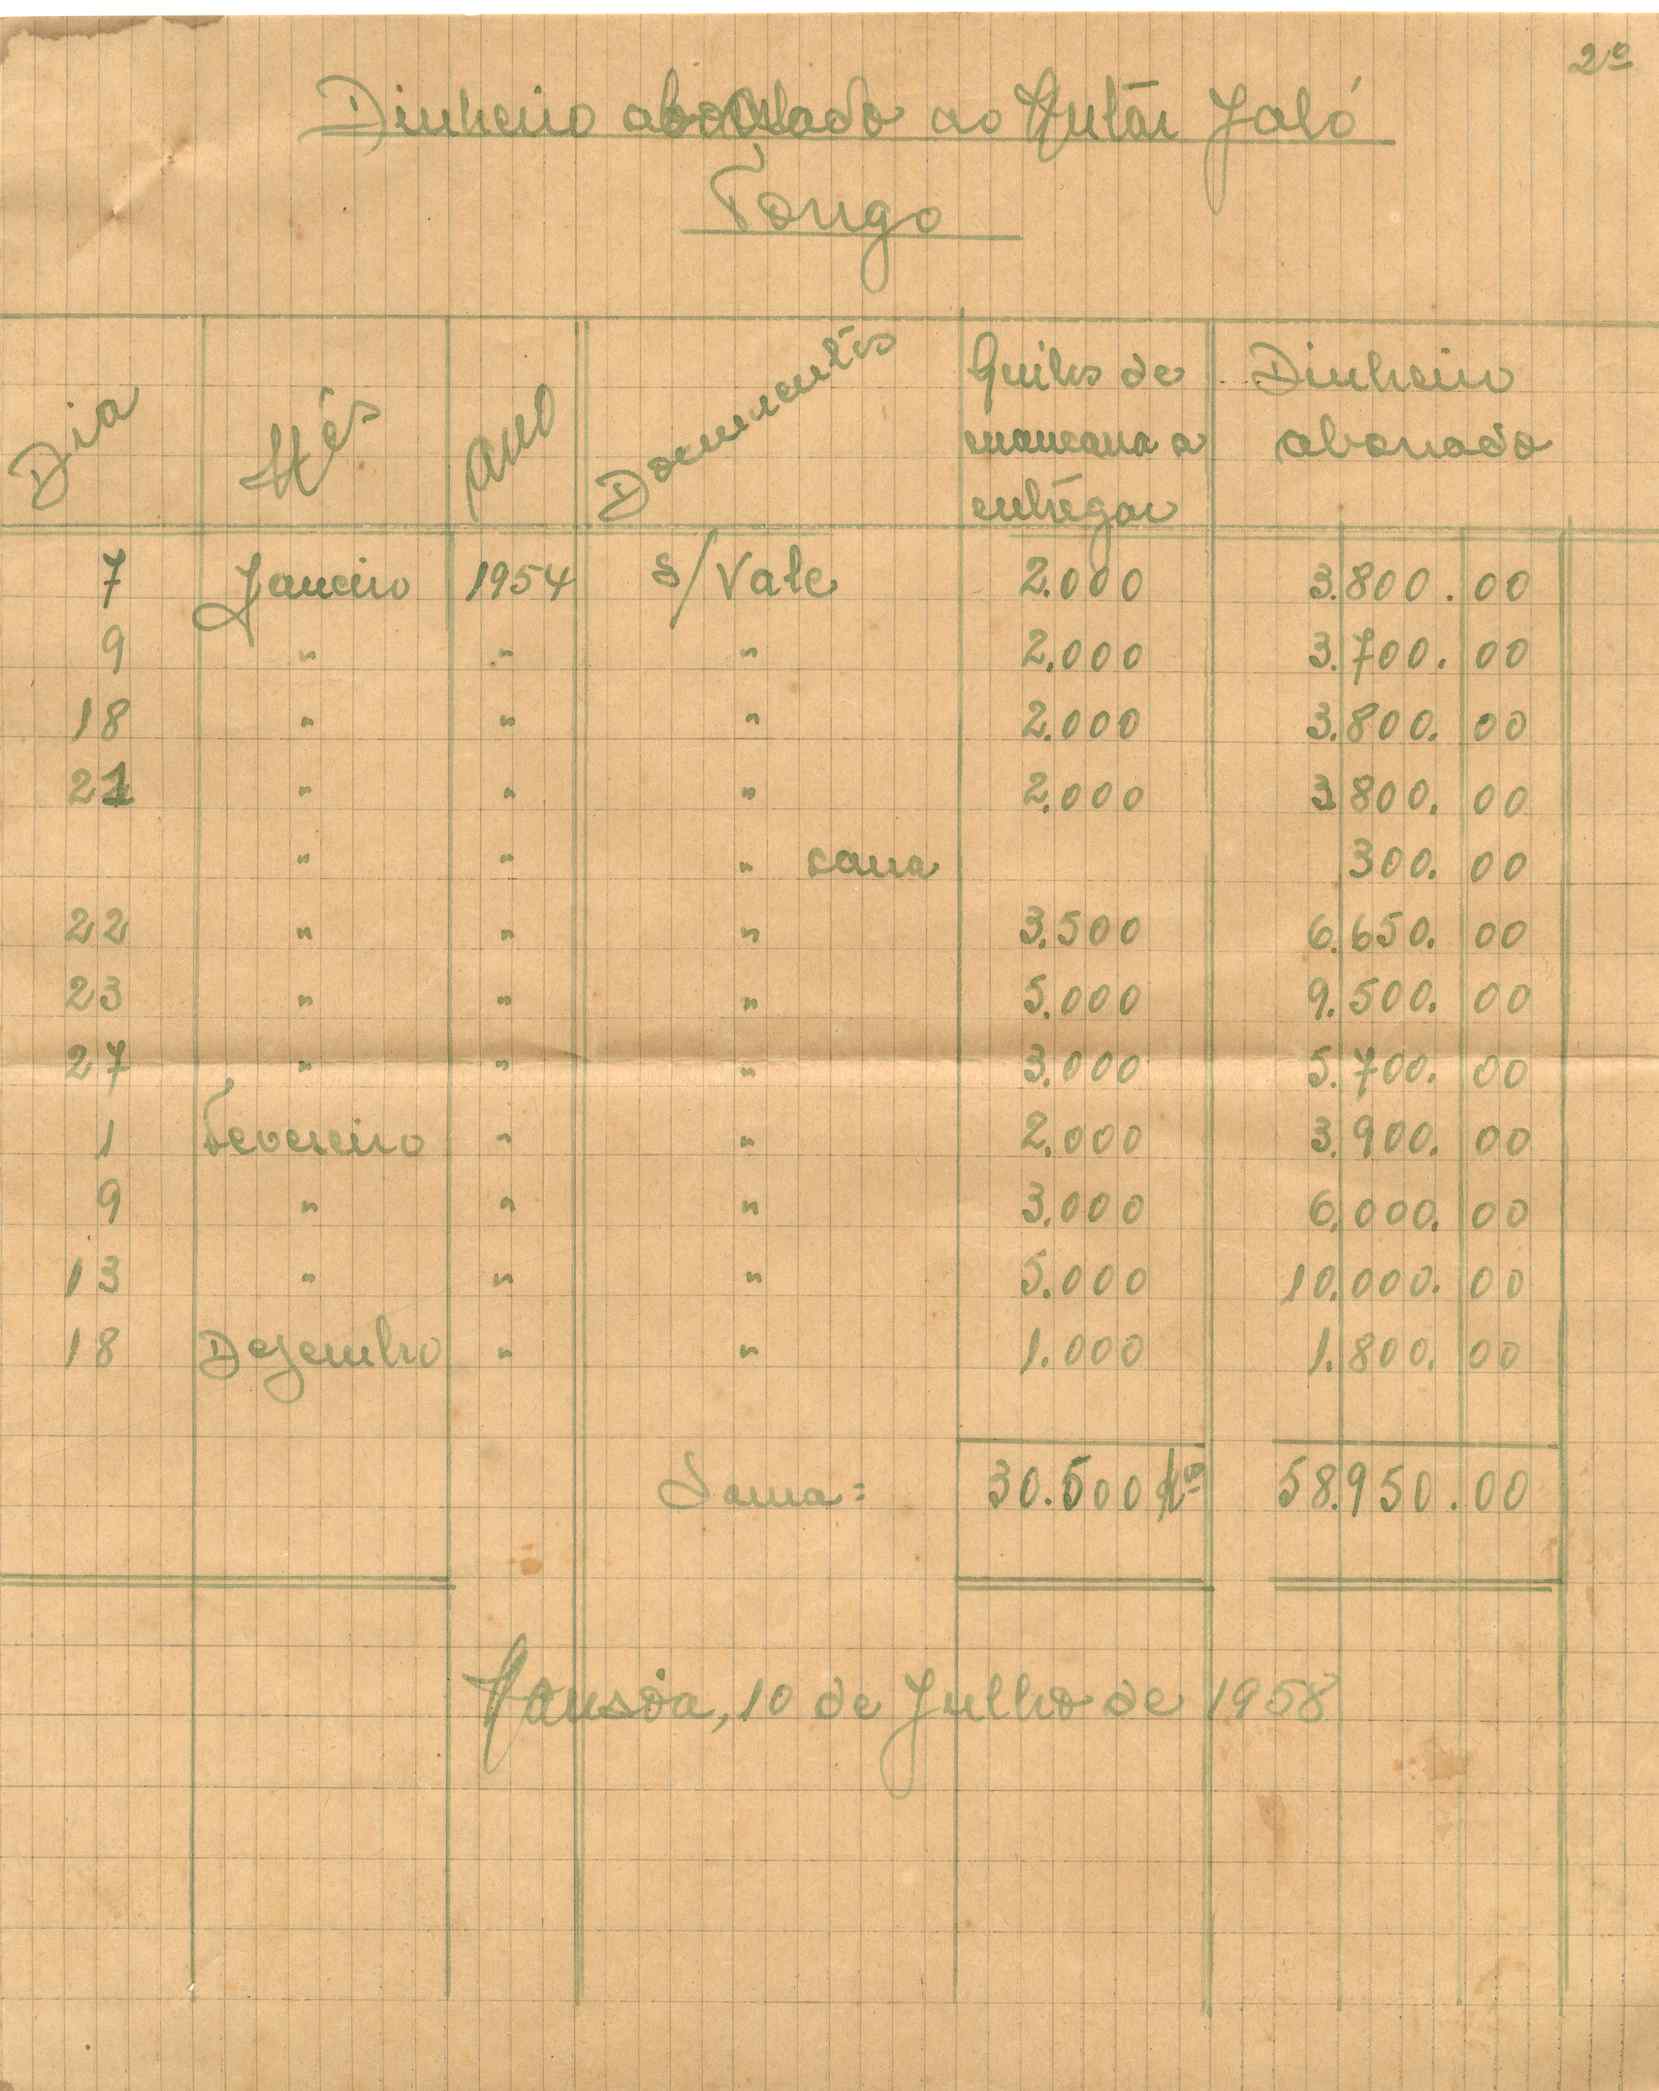 2º
Dinheiro abonado ao Mutár Jaló
Tongo
Dia Mês Ano Documentos Quilos de mancarra a entregar Dinheiro abonado
7 Janeiro 1954 s/Vale 2.000 3.800.00
9 " " " 2.000 3.700.00
18 " " " 2.000 3.800.00
21 " " " 2.000 3.800.00
" " " cana 300.00
22 " " " 3.500 6.650.00
23 " " " 5.000 9.500.00
27 " " " 3.000 5.700.00
1 Fevereiro " " 2.000 3.900.00
9 " " " 3.000 6.000.00
13 " " " 5.000 10.000.00
18 Dezembro " " 1.000 1.800.00
Soma = 30.500 Kºs 58.950.00
Mansôa, 10 de Julho de 1958